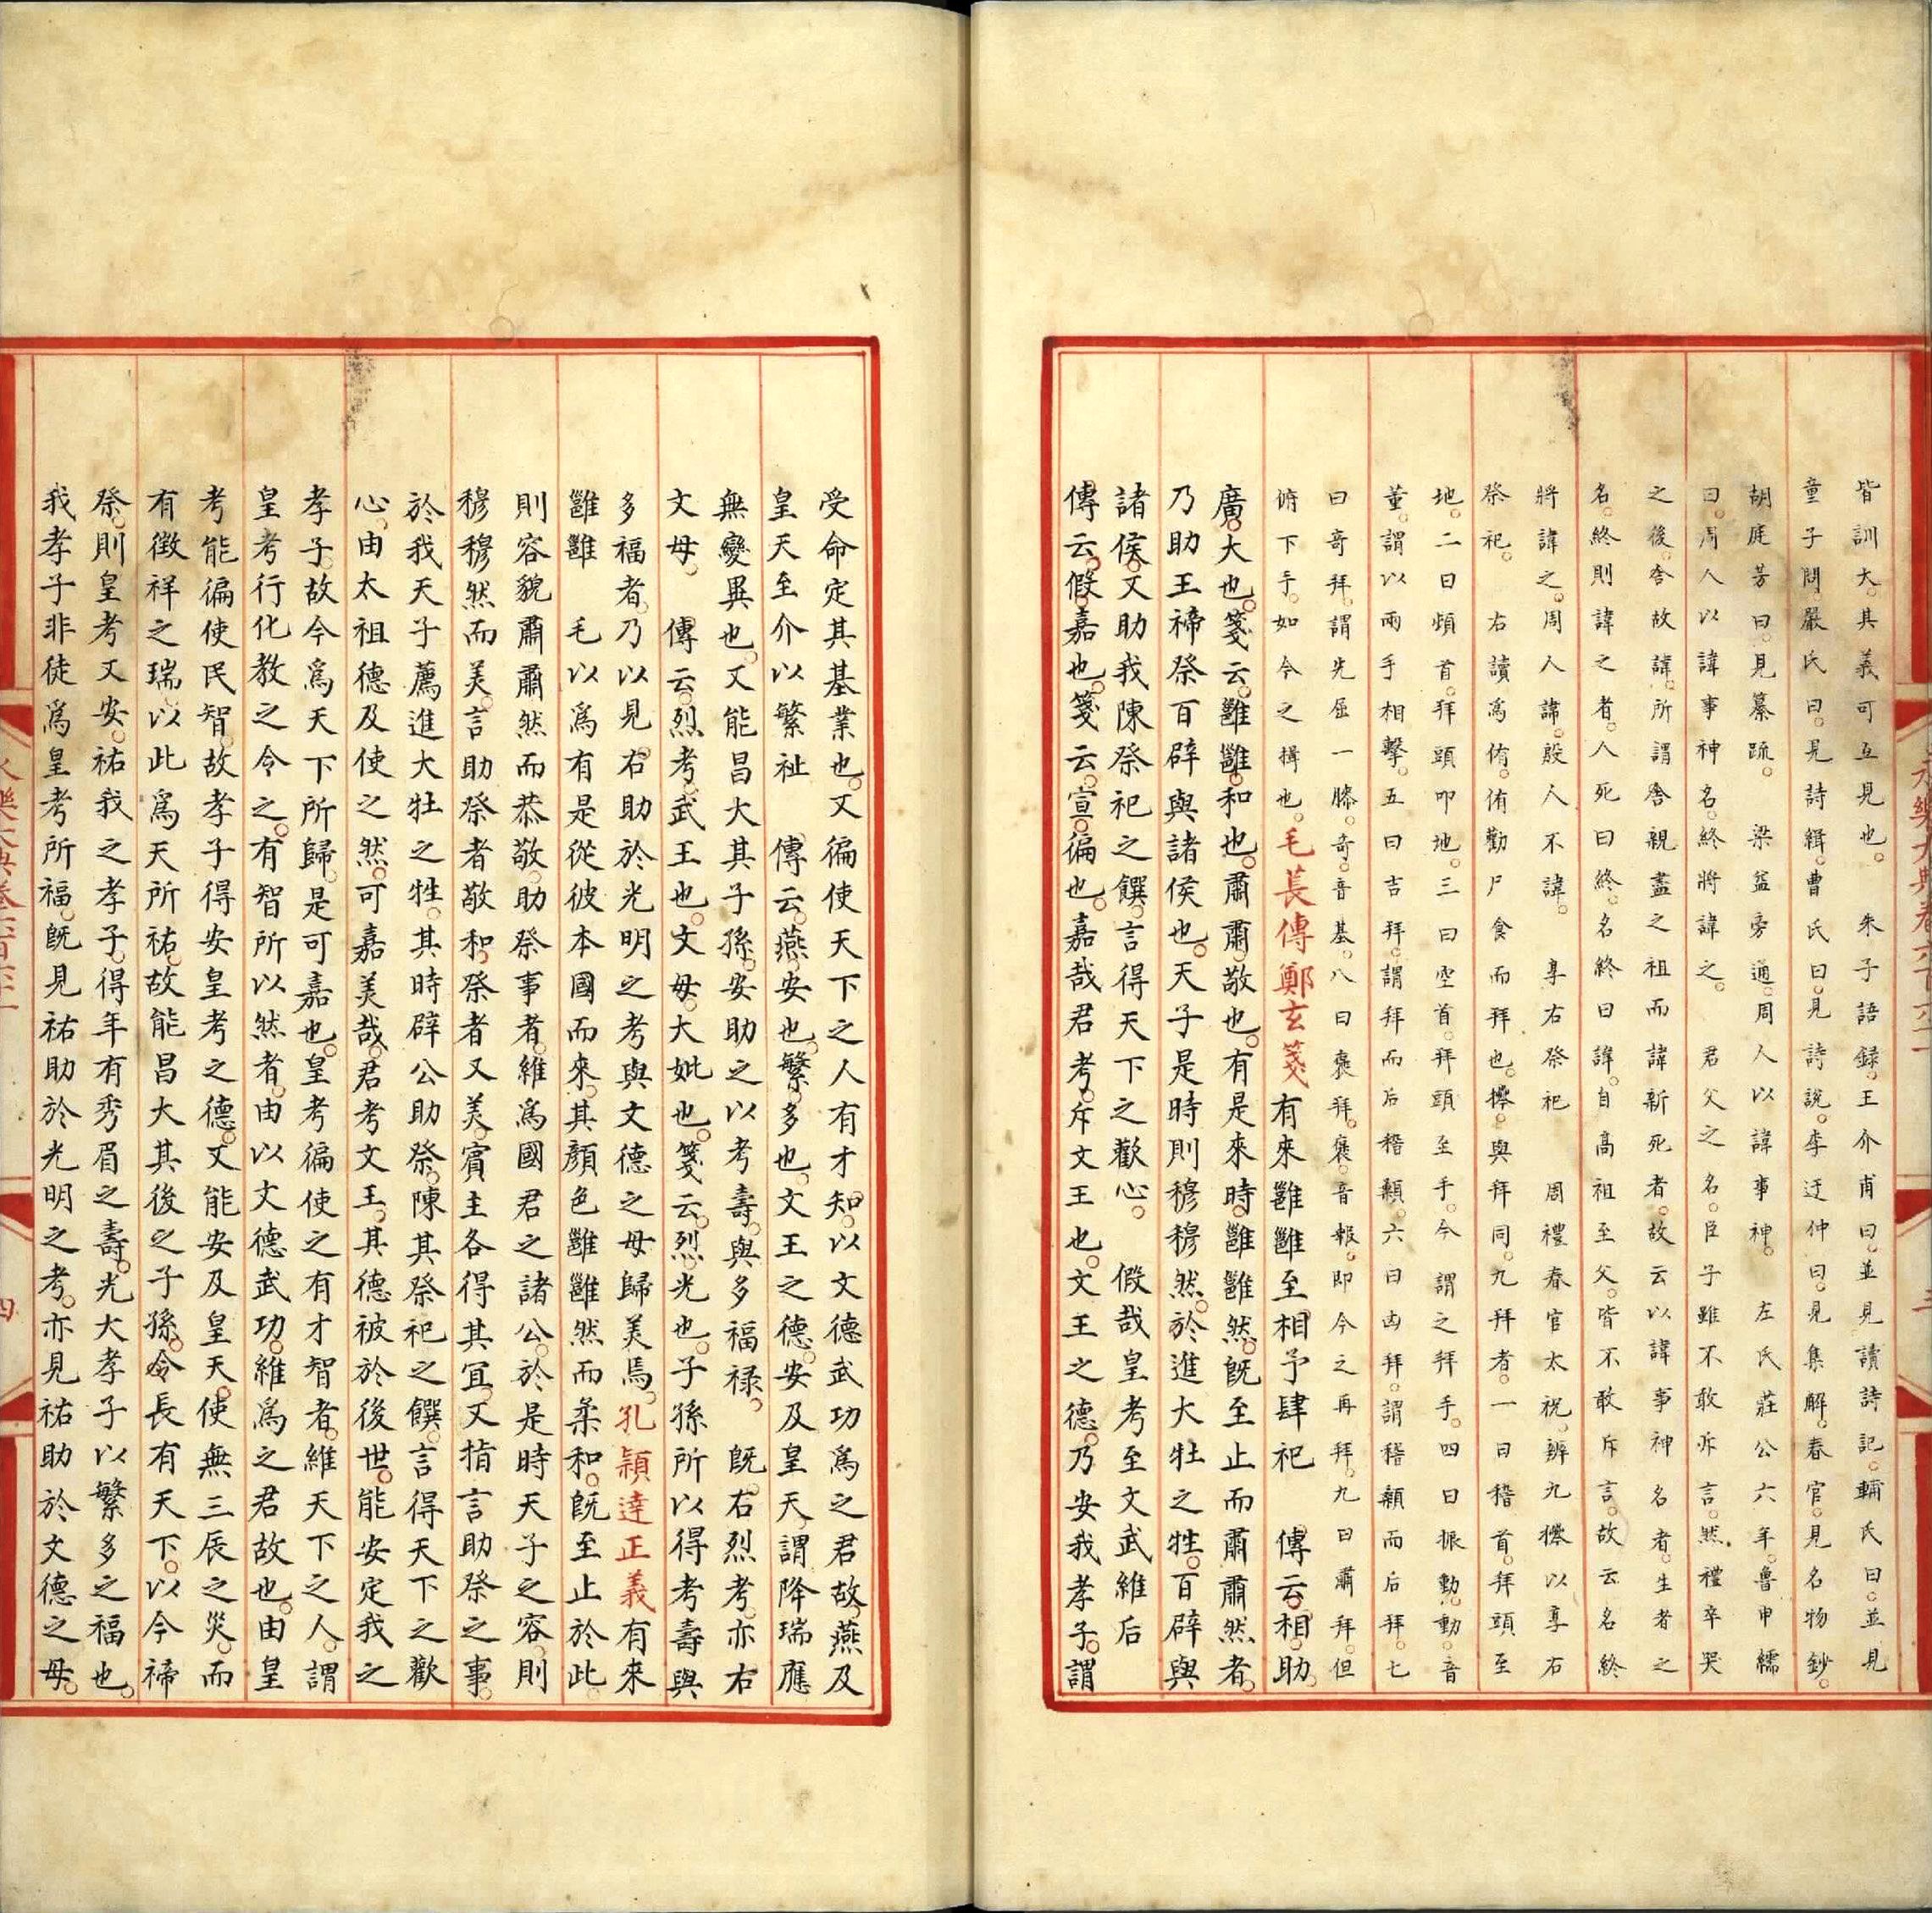 皆訓大。其義可互見也。 朱子語録。王介甫曰。並見讀詩記。輔氏曰。並見
童子問。嚴氏曰。見詩緝。曹氏曰。見詩說。李迂仲曰。見集解。春官。見名物鈔。
胡庭芳曰。見纂疏。 梁益旁通。周人以諱事神。 左氏莊公六年。魯申繻
曰。周人以諱事神名。終將諱之。 君父之名。臣子雖不敢斥言。然禮卒哭
之後。舍故諱。所謂舍親盡之祖而諱新死者。故云以諱事神名者。生者之
名。終則諱之者。人死曰終。名終曰諱。自高祖至父。皆不敢斥言。故云名終
將諱之。周人諱。殷人不諱。 享右祭祀 周禮春官太祝。辨九𢷎以享右
祭祀。 右讀爲侑。侑勸尸食而拜也。𢷎。與拜同。九拜者。一曰稽首。拜頭至
地。二曰頓首。拜頭叩地。三曰空首。拜頭至手。今謂之拜手。四曰振動。動。音
董。謂以兩手相擊。五曰吉拜。謂拜而后稽顙。六曰凶拜。謂稽顙而后拜。七
曰奇拜。謂先屈一膝。奇。音基。八曰襃拜。襃。音報。即今之再拜。九曰肅拜。但
俯下手。如今之揖也。毛萇傳鄭玄箋有來雝雝至相予肆祀 傳云。相。助。
廣。大也。箋云。雝雝。和也。肅肅。敬也。有是來時。雝雝然。旣至止而肅肅然者。
乃助王禘祭百辟與諸侯也。天子是時則穆穆然。於進大牡之牲。百辟與
諸侯。又助我陳祭祀之饌。言得天下之歡心。 假哉皇考至文武維后
傳云。假。嘉也。箋云。宣。徧也。嘉哉君考。斥文王也。文王之德。乃安我孝子。謂
受命定其基業也。又徧使天下之人有才知。以文德武功爲之君故。燕及
皇天至介以繁祉 傳云。燕。安也。繁。多也。文王之德。安及皇天。謂降瑞應
無變異也。又能昌大其子孫。安助之以考壽。與多福禄。 旣右烈考。亦右
文母。 傳云。烈考。武王也。文母。大姒也。箋云。烈。光也。子孫所以得考壽與
多福者。乃以見右助於光明之考與文德之母歸美焉。孔穎達正義有來
雝雝 毛以爲有是從彼本國而來。其顏色雝雝然而柔和。旣至止於此。
則容貌肅肅然而恭敬。助祭事者。維爲國君之諸公。於是時天子之容。則
穆穆然而美。言助祭者敬和。祭者又美。賓主各得其宜。又指言助祭之事。
於我天子薦進大牡之牲。其時辟公助祭。陳其祭祀之饌。言得天下之歡
心。由太祖德及使之然。可嘉美哉。君考文王。其德被於後世。能安定我之
孝子。故今爲天下所歸。是可嘉也。皇考徧使之有才智者。維天下之人。謂
皇考行化教之令之。有智所以然者。由以文德武功。維爲之君故也。由皇
考能徧使民智。故孝子得安皇考之德。又能安及皇天。使無三辰之災。而
有徵祥之瑞。以此爲天所祐。故能昌大其後之子孫。令長有天下。以今禘
祭。則皇考又安。祐我之孝子。得年有秀眉之壽。光大孝子以繁多之福也。
我孝子非徒爲皇考所福。旣見祐助於光明之考。亦見祐助於文德之母。